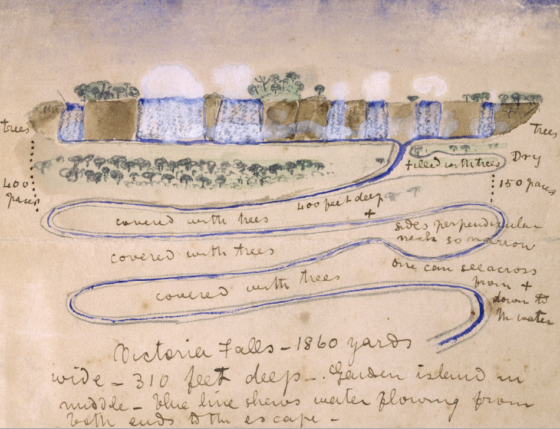 trees
Trees
filled with trees
Dry
400 paces
150 paces
400 feet deep
+
covered with trees
sides perpendicular
neck so narrow
covered with trees
one can see across
from +
down to
the water
covered with trees
Victoria Falls - 1860 yards
wide - 310 feet deep - Garden island in
middle - blue line shews water flowing from
both ends to the escape -